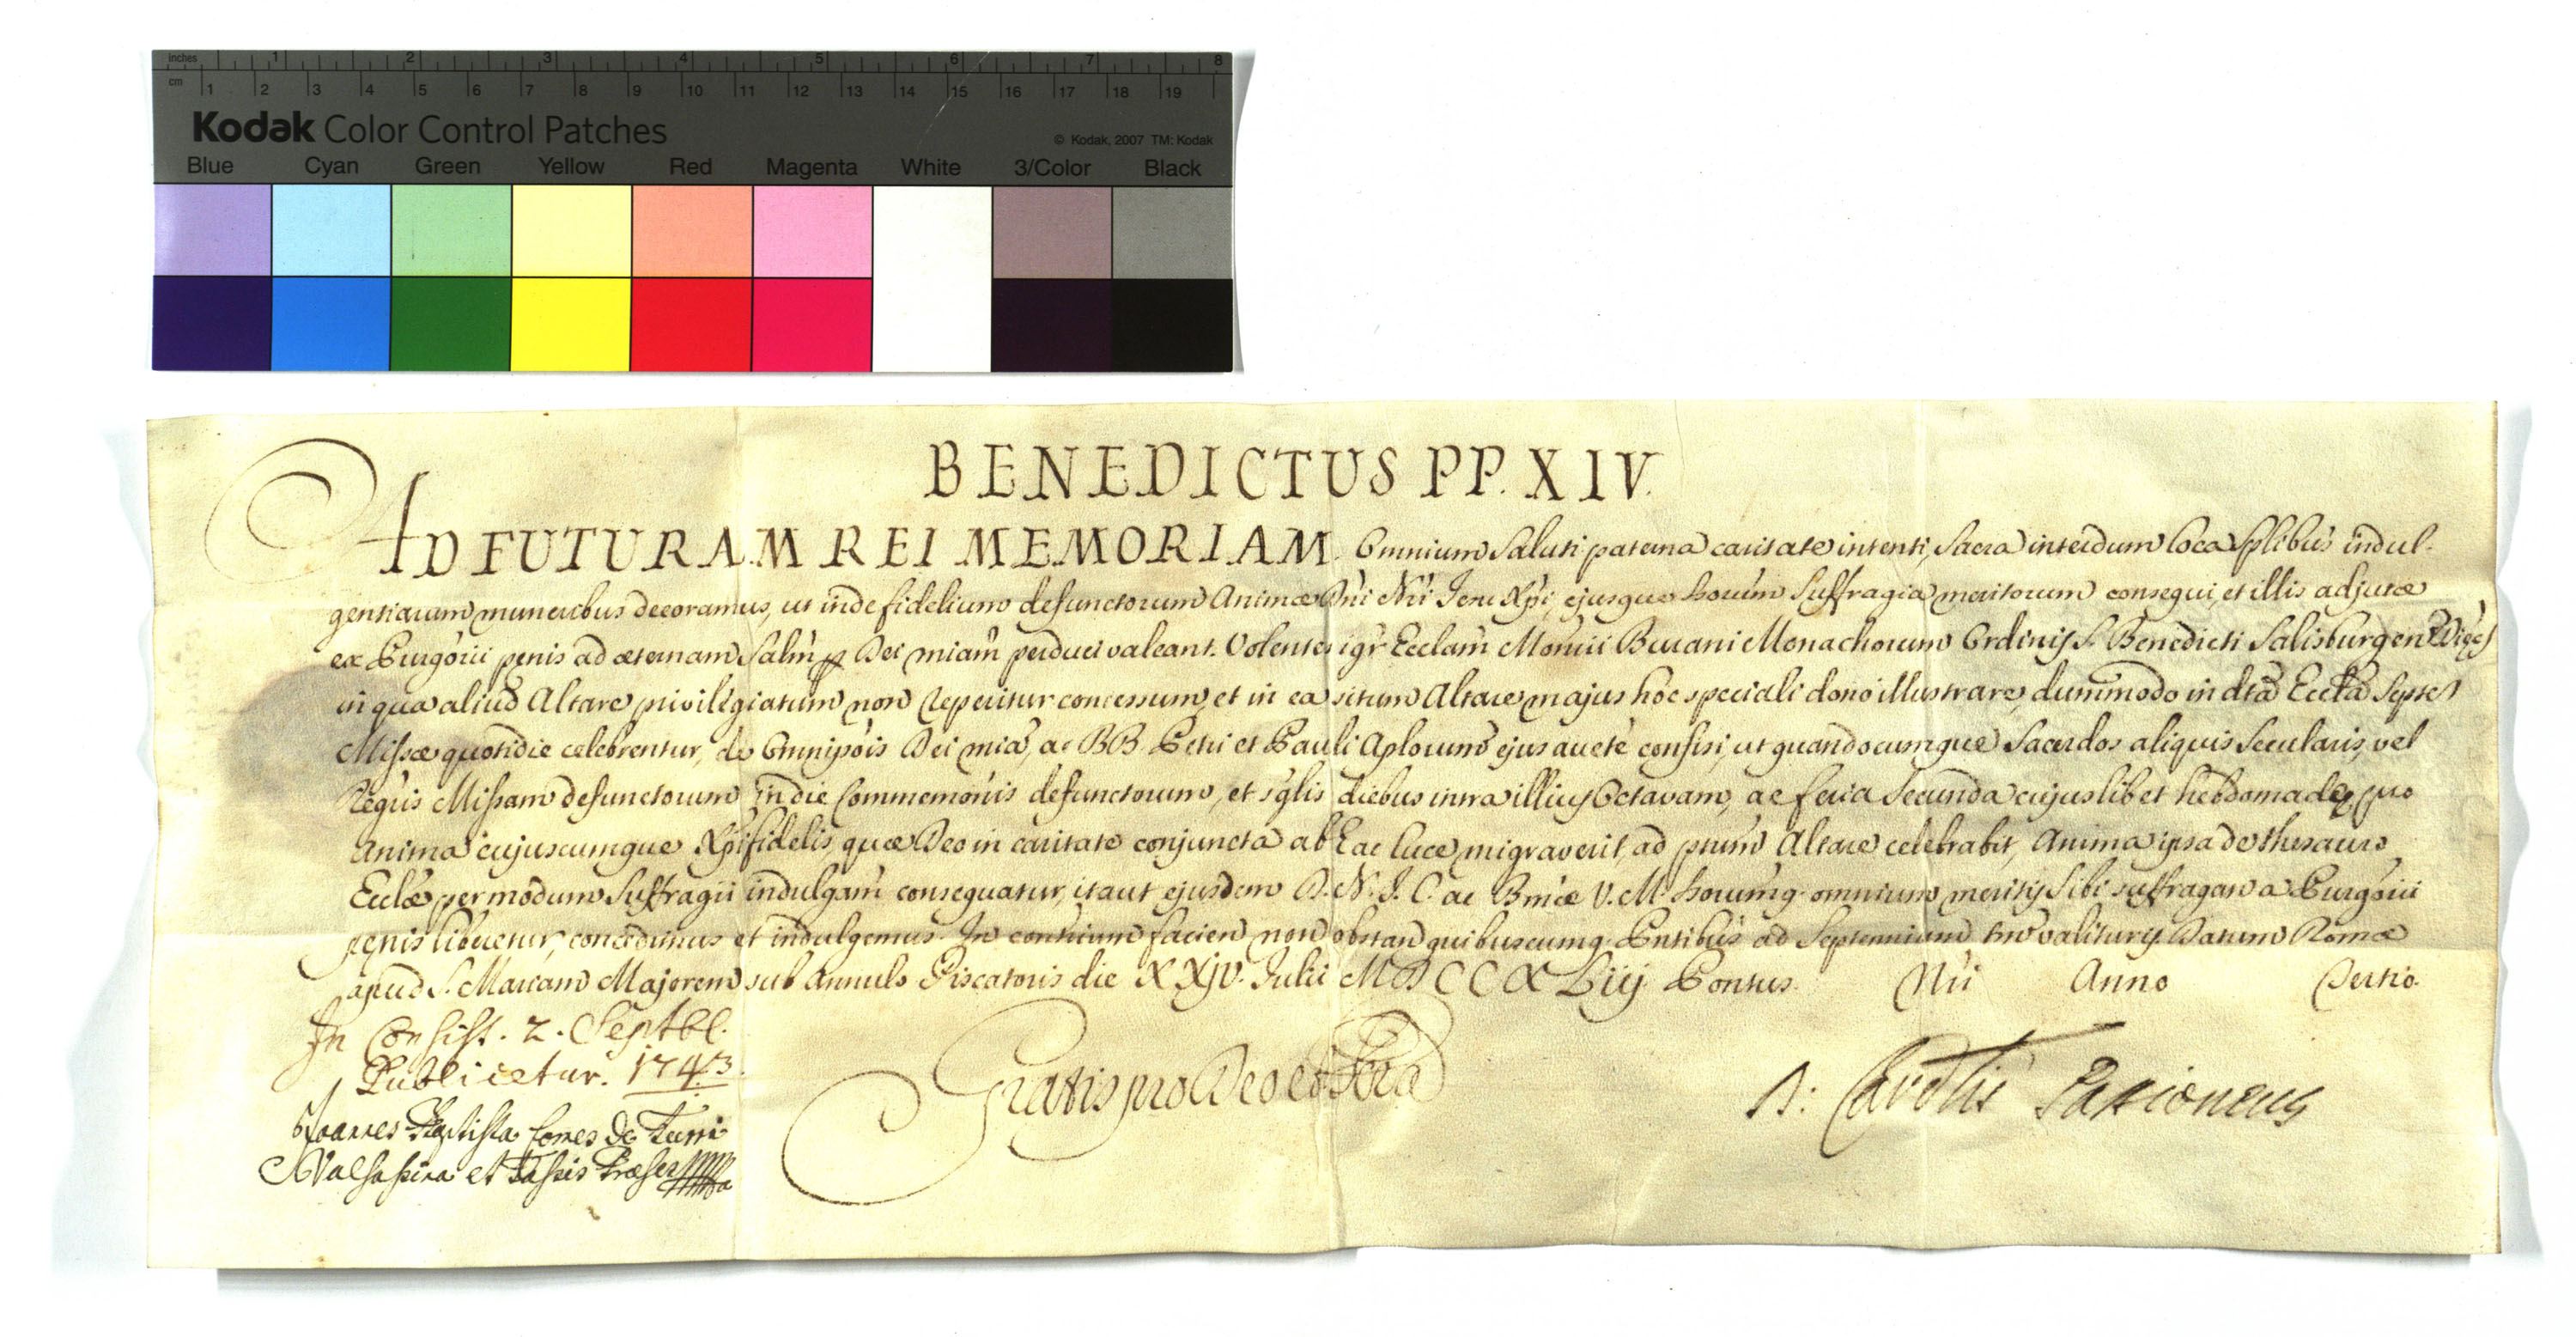 inches 1 2 3 4 5 6 7 8
cm 1 2 3 4 5 6 7 8 9 10 11 12 13 14 15 16 17 18 19
Kodak Color Control Patches © Kodak, 2007 TM: Kodak
Blue Cyan Green Yellow Red Magenta White 3/Color Black
BENEDICTUS PP. XIV.
AD FUTURAM REI MEMORIAM. Omnium Saluti paterna caritate intenti, Sacra interdum loca Splibus indul-
gentiarum muneribus decoramus, ut inde fidelium defunctorum Animæ Dni Nri Jesu Xpi, ejusque Sanctorum Suffragia meritorum consequi, et illis adjutæ
ex Purgorii penis ad æternam Salm p Dei miam perduci valeant. Volentes igr Ecclam Monrii Burani Monachorum Ordinis S. Benedicti Salisburgen
in qua aliud Altare privilegiatum non reperitur concessum, et in ea situm Altare majus hoc speciali dono illustrare, dummodo in dta Eccla Septem
Missæ quotidie celebrentur, de Omnipois Dei mia, ac BB. Petri et Pauli Aplorum ejus aucte confisi, ut quandocumque Sacerdos aliquis Secularis, vel
Regris Missam defunctorum in die Commemonis defunctorum, et sglis diebus infra illius Octavam, ac feria Secunda cujuslibet hebdomadæ, pro
Anima cujuscumque Xpifidelis, quæ Deo in caritate conjuncta ab hac luce migraverit, ad ptum Altare celebrabit, Anima ipsa de thesauro
Ecclæ per modum Suffragii indulgam consequatur, ita ut ejusdem D. N. J. C. ac Bmæ V. M. omnium meritis Sibi suffragan a Purgorii
penis liberetur, concedimus et indulgemus. In contrium facien non obstan quibuscumq. ad Septennium tm valituris. Datum Romæ
apud S. Mariam Majorem sub Annulo Piscatoris die XXjv. Julii MDCCXLiij. Pontus. Nri Anno Tertio.
In Consist. 2. Septbr.
Publicetur. 1743.
Joannes Baptista Comes de Turri
Valsassina et Tassis Præses
Gratis pro Deo et Scra
D: Carolus Passioneus